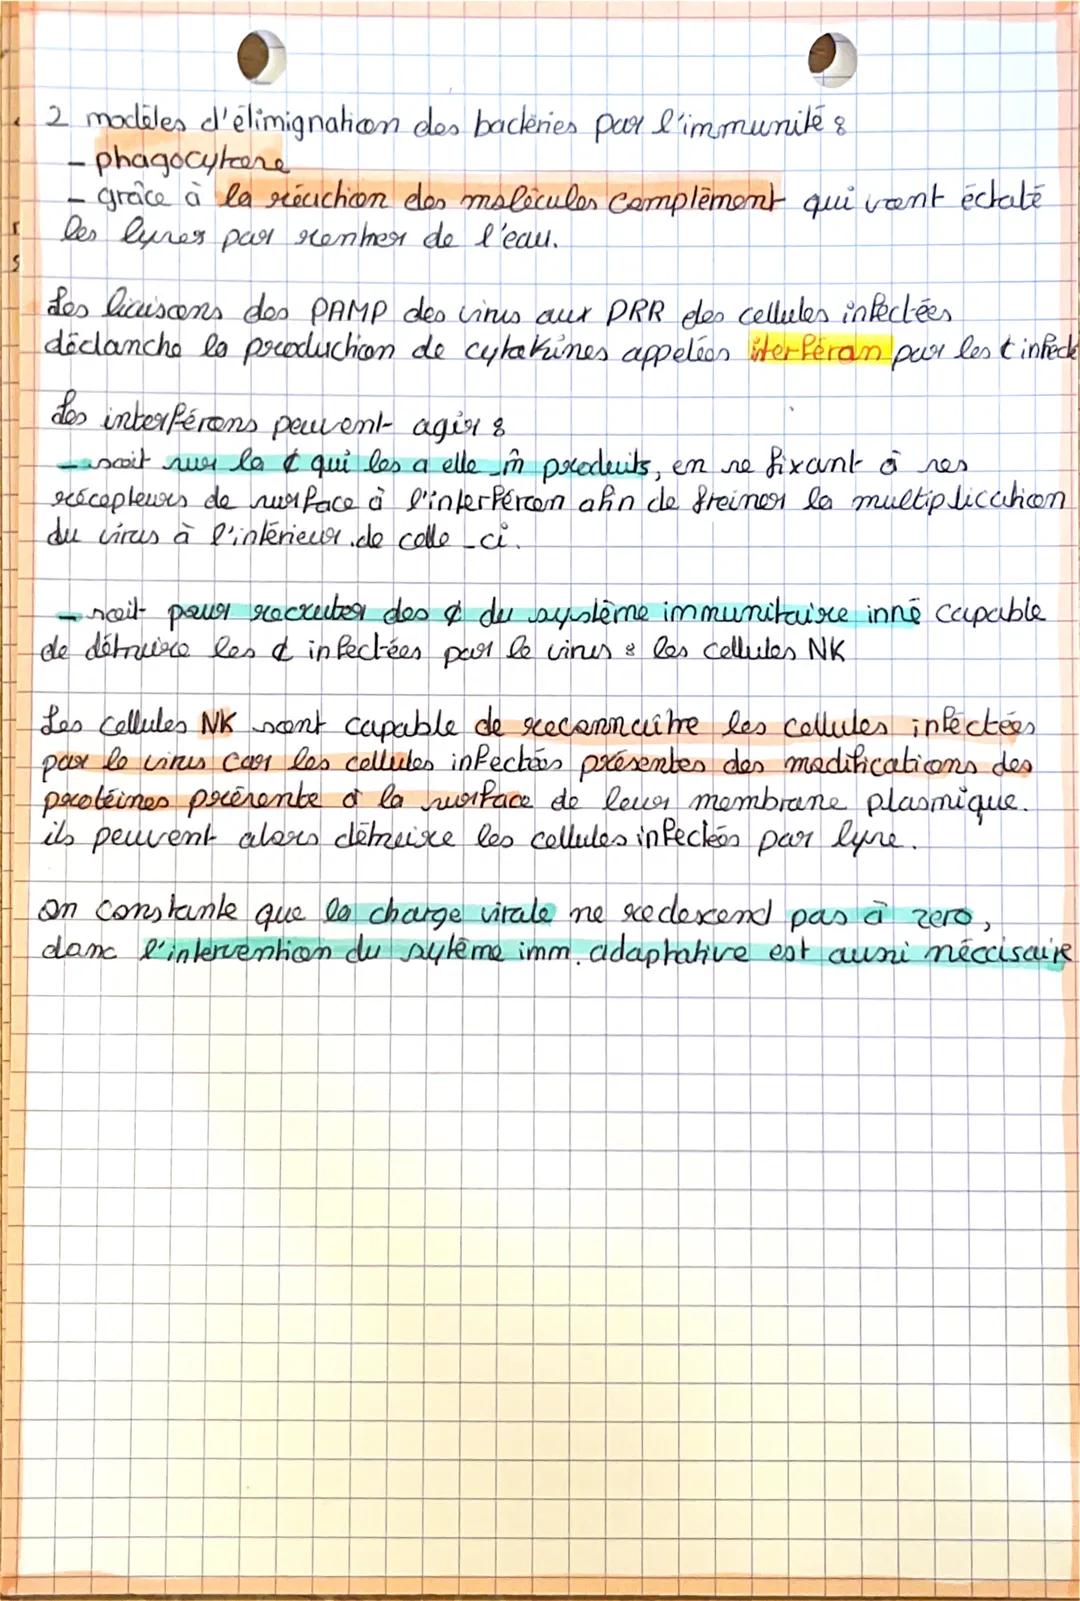 2 modèles d'élimignation des bactéries par l'immunité :
- phagocytose
- grâce à la réaction des molécules complément qui vont éclaté
les lyser par rentrer de l'eau.
Les liaisons des PAMP des virus aux PRR des cellules infectées
déclanche la production de cytokines appelées iterféron par les ¢ infecté
Les interférons peuvent agir :
- soit sur la ¢ qui les a elle m̂ produits, en se fixant à ses
récepteurs de surface à l'interféron afin de freiner la multiplication
du virus à l'intérieur de celle-ci.
- soit pour recruter des ¢ du système immunitaire inné capable
de détruire les ¢ infectées par le virus : les cellules NK
Les cellules NK sont capable de reconnaître les cellules infectées
par le virus car les cellules infectées présentes des modifications des
protéines présente à la surface de leur membrane plasmique.
ils peuvent alors détruire les cellules infectées par lyse.
On constante que la charge virale ne redescend pas à zero,
donc l'intervention du sytème imm. adaptative est aussi néccisaire